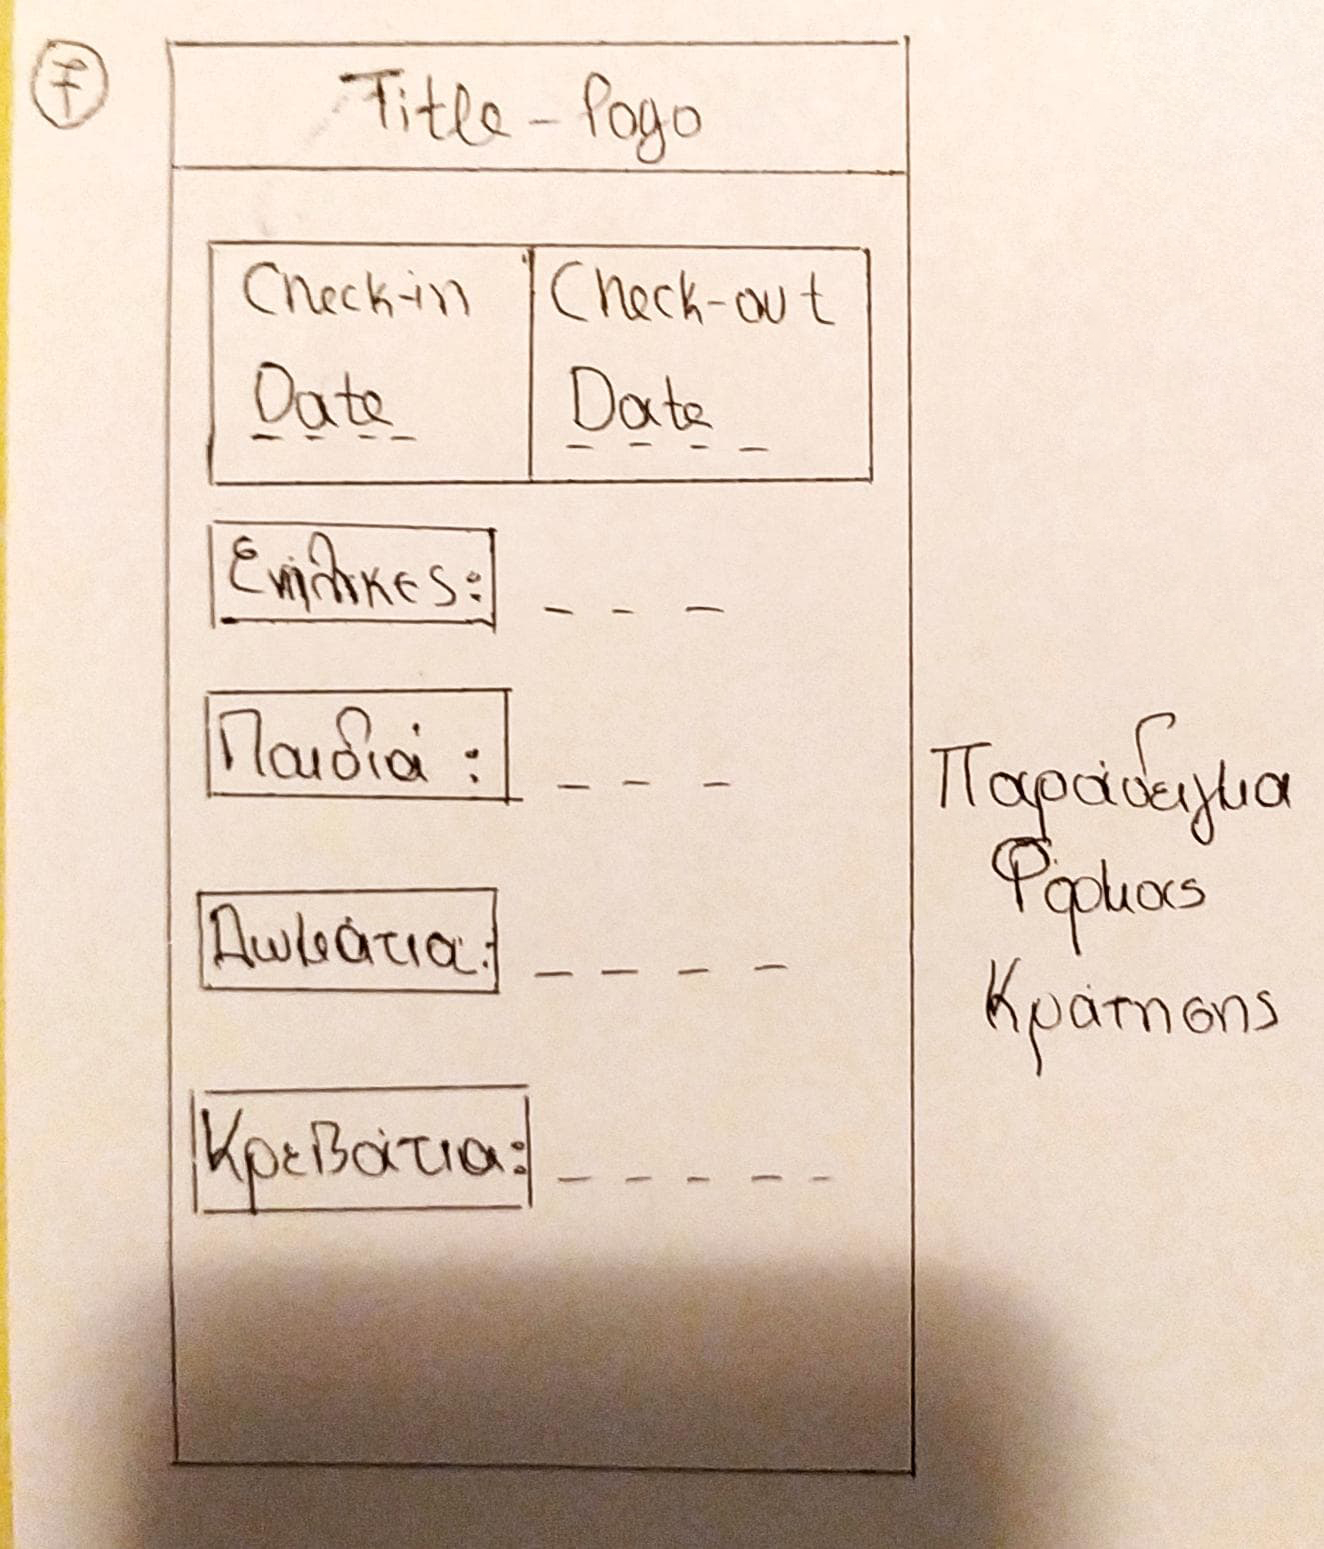 7
Title - logo
Check-in
Date
Check-out
Date
Ενήλικες:
Παιδιά :
Δωμάτια:
Κρεβάτια:
Παράδειγμα
Φόρμας
Κράτησης